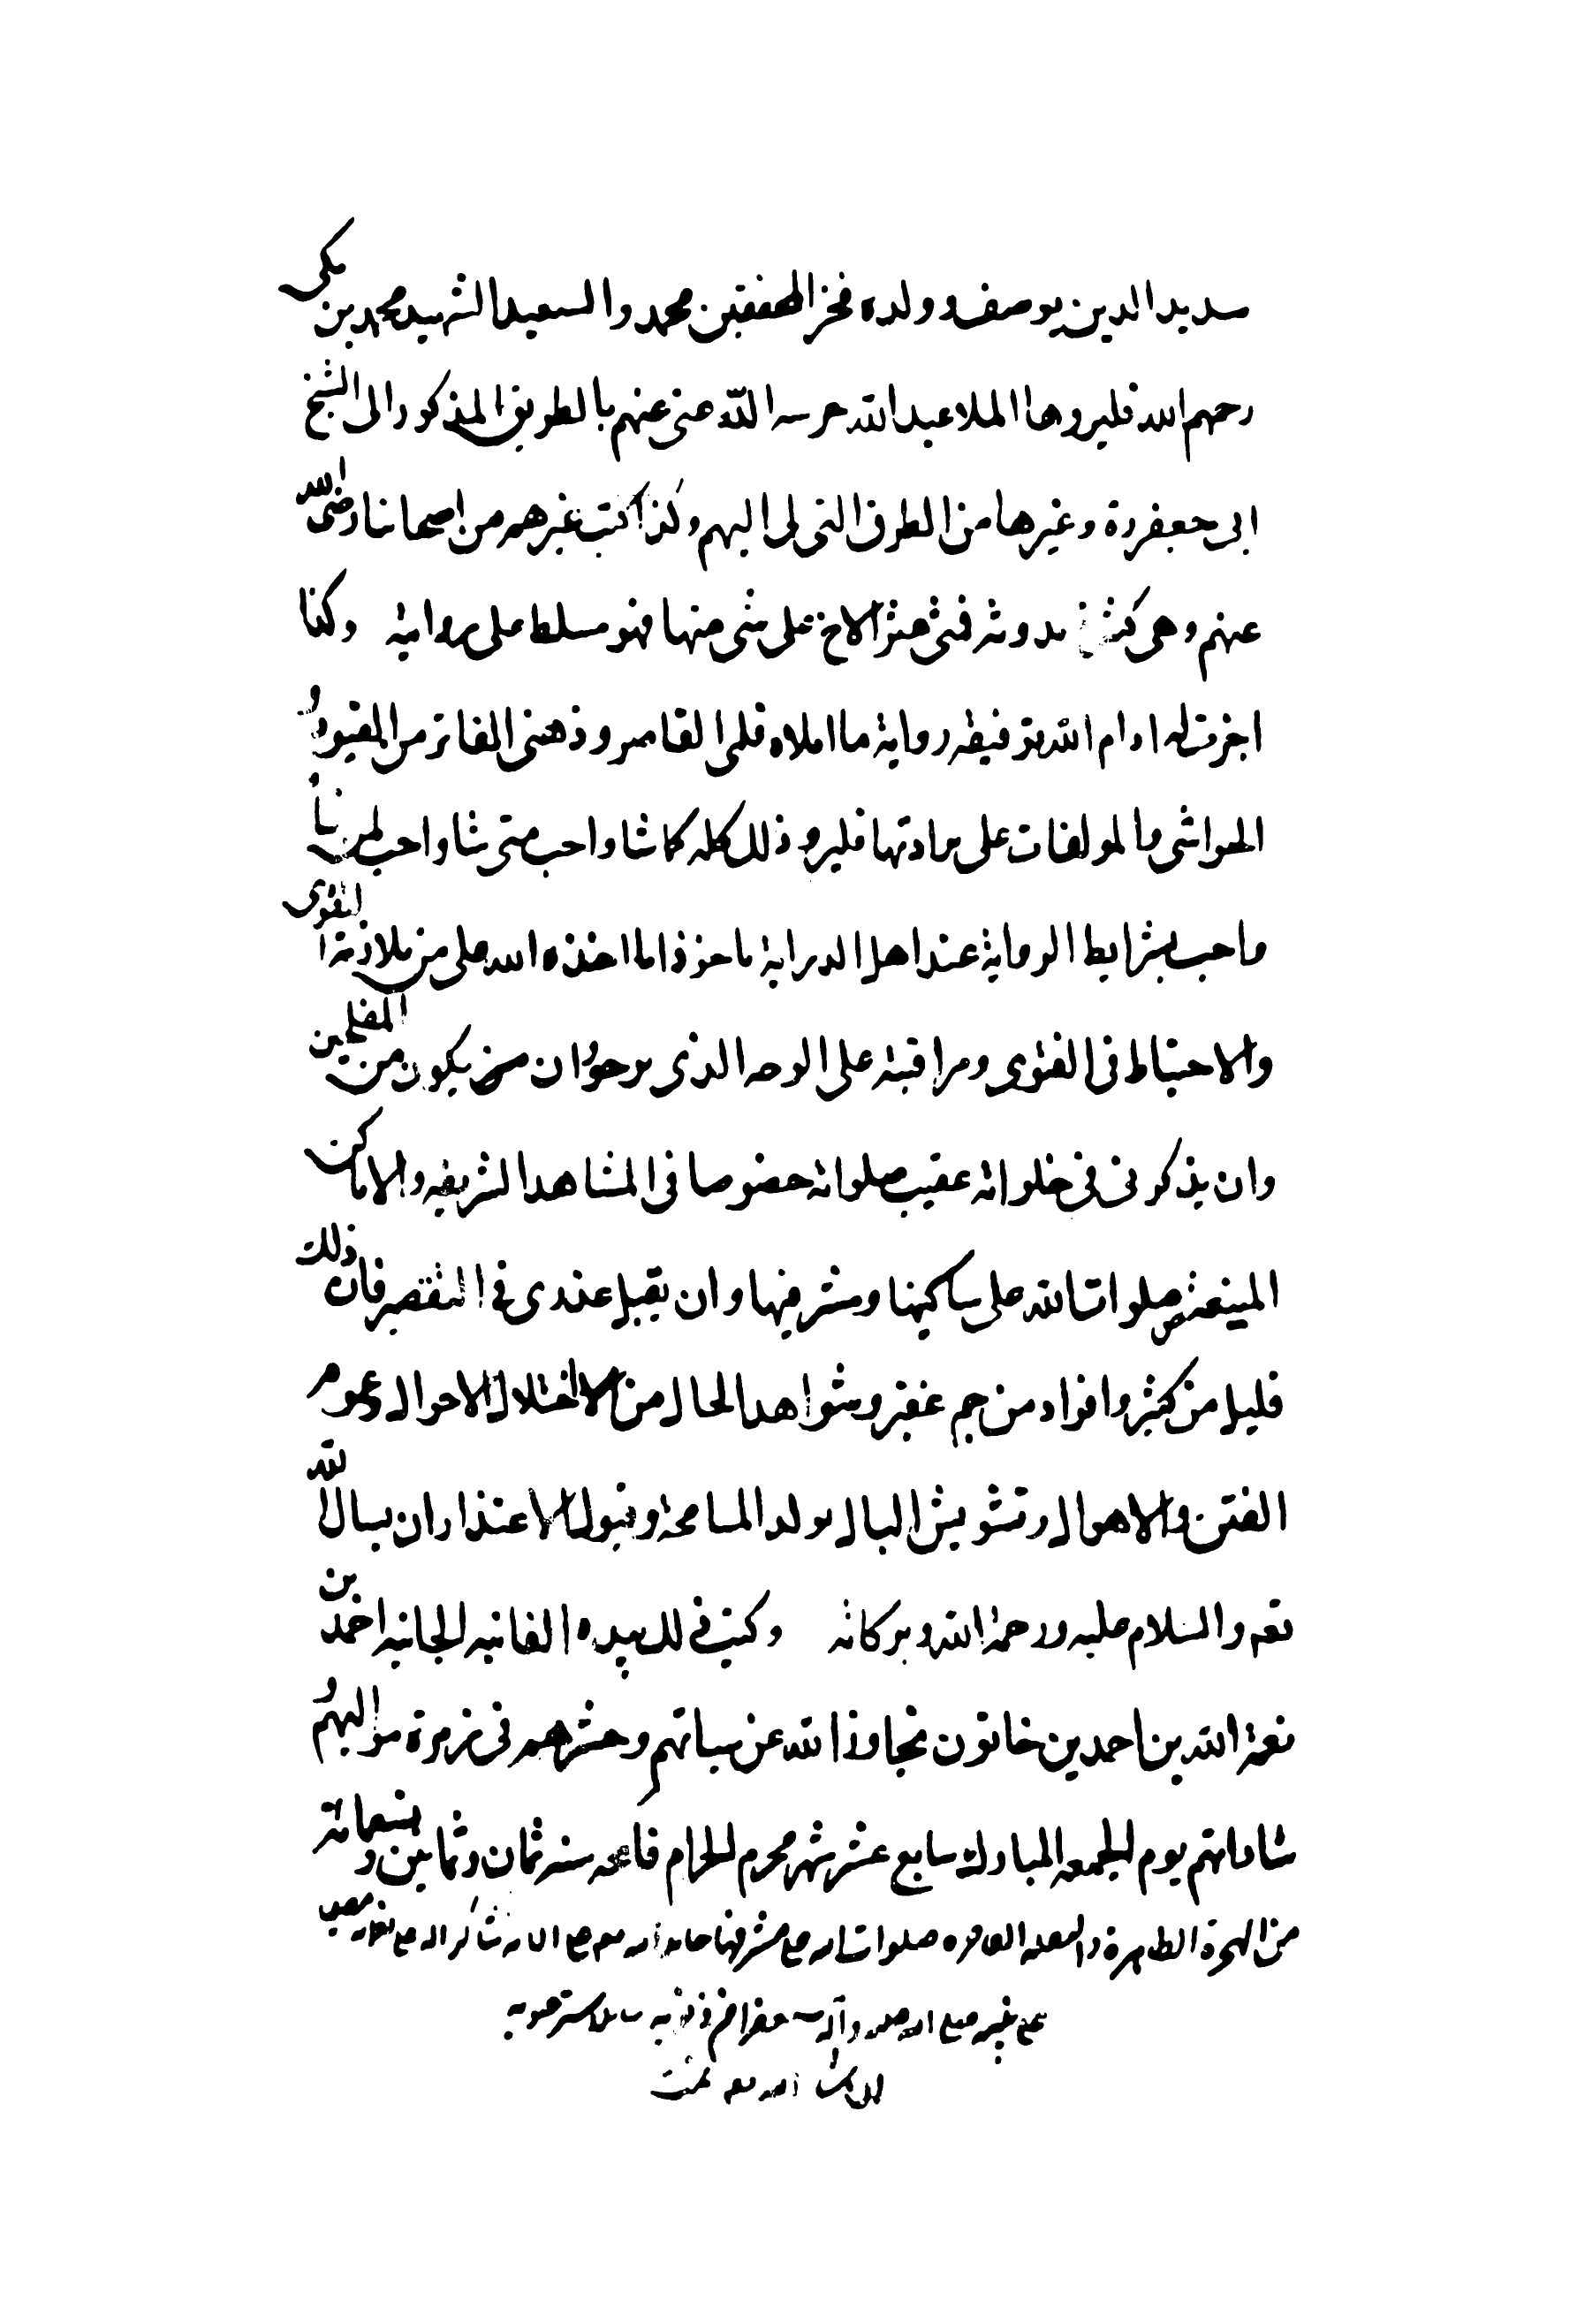 سديد الدين يوسف وولده فخر المحققين محمد والسعيد الشهيد محمد بن مكى
رحمهم الله فليروها الملا عبد الله حرسه الله عنى عنهم بالطريق المذكور الى الشيخ
ابى جعفر ره وغيرها من الطرق التى لى اليهم وكذا كتب غيرهم من اصحابنا رضى الله
عنهم وهى كثيرة مدونه فمتى عثر الاخ على شى منها فهو مسلط على روايته وكذا
اجزت له ادام الله توفيقه رواية ما املاه قلمى القاصر وذهنى الفاتر من القيود و
الحواشى والمولفات على مادتها فليرو ذلك كله كما شا واحب متى شا واحب لمن شا
واحب بشرايط الرواية عند اهل الدراية ماخوذا ما اخذه الله على من ملازمة التقوى
والاحتياط فى الفتوى ومراقبته على الوجه الذى يرجو ان يكون من المفلحين
وان يذكرنى فى خلواته عقيب صلواته خصوصا فى المشاهد الشريفه والاماكن
المنيفة صلوات الله على ساكنيها ومشرفيها وان يقبل عذرى فى التقصير فان ذلك
قليل من كثير وافراد من جم غفير وشواهد الحال من الاختلال الاحوال وعموم
الفتن والاهوال وتشويش البال يولد المسامحة وقبول الاعتذار ان يسال الله
تعم والسلام عليه ورحمة الله وبركاته وكتب ذلك بيده الفانيه الجانيه احمد بن
نعمة الله بن احمد بن خاتون تجاوز الله عن سياتهم وحشرهم فى زمرة مواليهم و
ساداتهم يوم الجمعه المبارك سابع عشر شهر محرم الحرام فاتحه سنه ثمان وثمانين وتسعمائة
من الهجرة الطاهرة صلوات الله على مشرفها حامدا لله تعم على الائه شاكرا له على نعمائه مصليا
على نبيه صلى الله عليه وآله مستغفرا من ذنوبه سائلا ستر عيوبه
ان شا الله تعم تمت